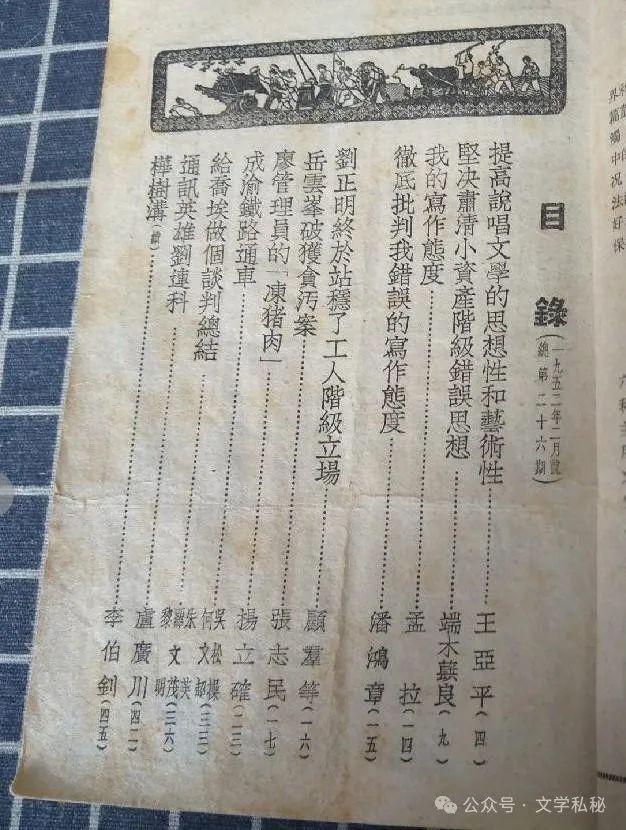 目錄
(一九五二年二月號)
(總第二十六期)
提高說唱文學的思想性和藝術性……王亞平(四)
堅決肅清小資產階級錯誤思想……端木蕻良(九)
我的寫作態度……孟拉(一四)
徹底批判我錯誤的寫作態度……潘鴻章(一五)
劉正明終於站穩了工人階級立場……顧羣等(一六)
岳雲峯破獲貪污案……張志民(一七)
廖管理員的「凍猪肉」……揚立確(二三)
成渝鐵路通車……吳松 何文(三三)
給喬埃做個談判總結……朱 文茂 黎明(三六)
通訊英雄劉連科……盧廣川(四二)
樺樹溝(續)……李伯釗(四五)
公众号·文学私秘